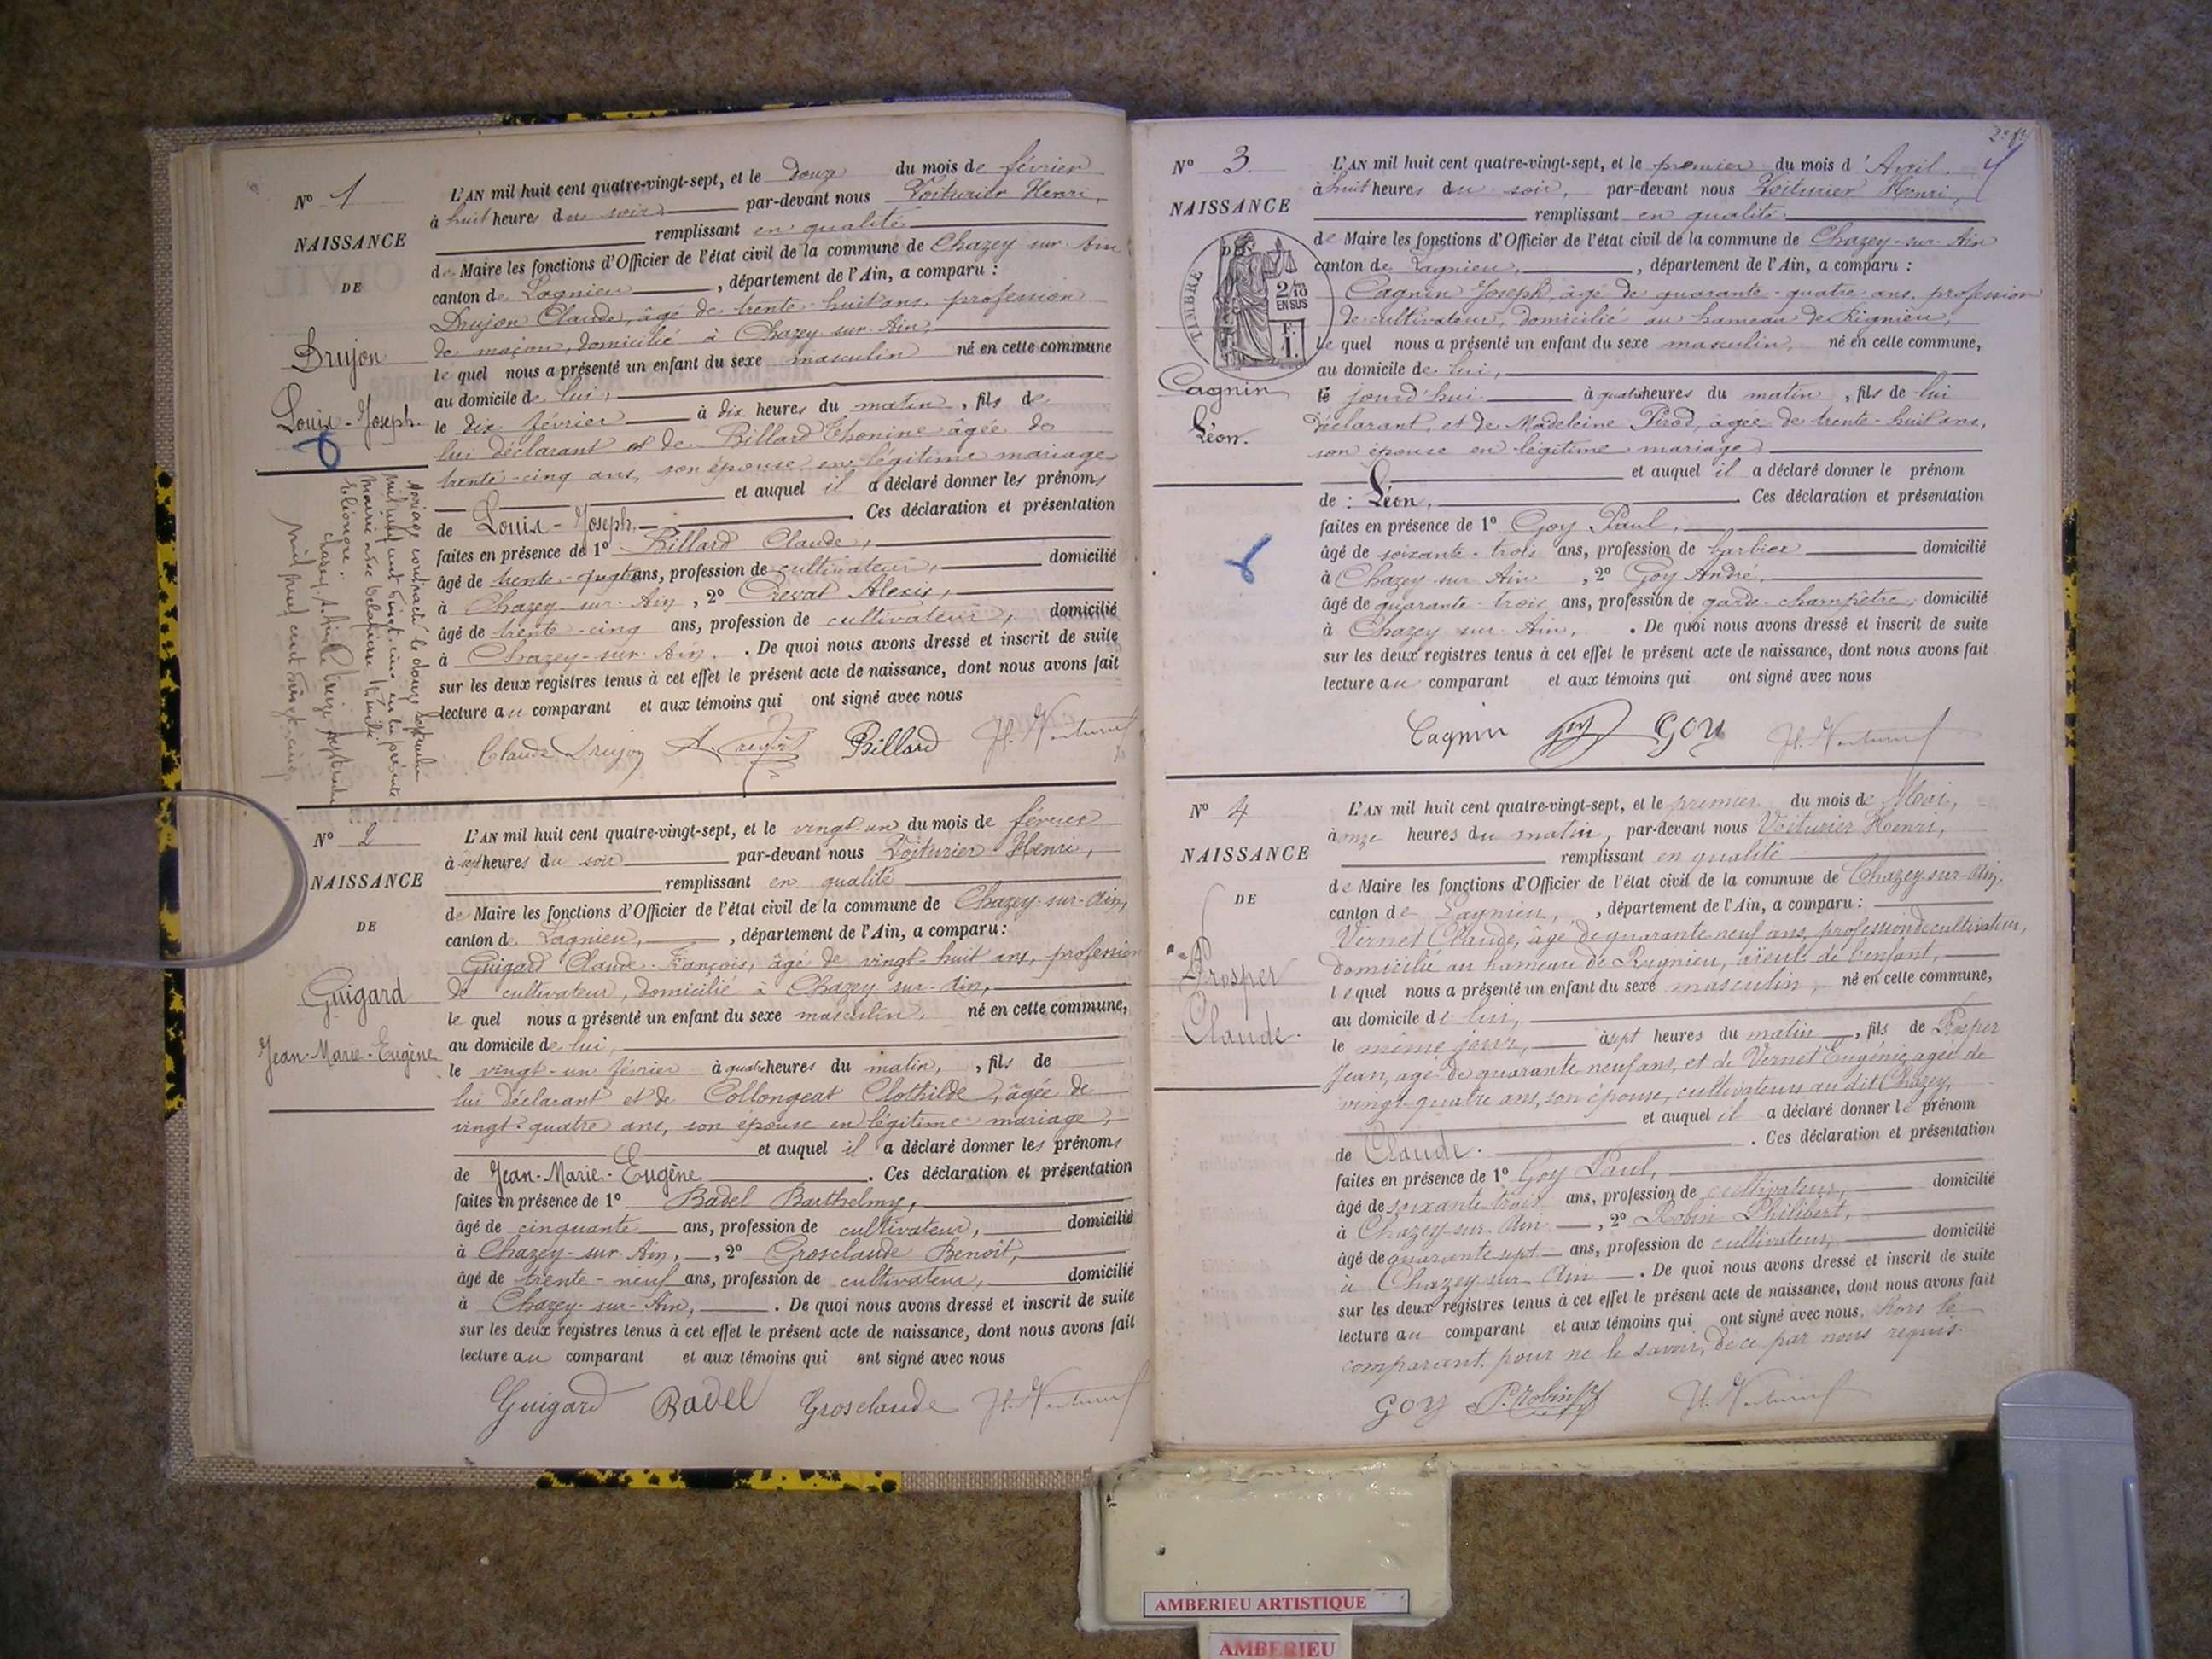 N° 1
NAISSANCE
DE
Drujon
Louis-Joseph.
L'AN mil huit cent quatre-vingt-sept, et le douze du mois de février
à huit heures du soir par-devant nous Voiturier Henri,
remplissant en qualité
de Maire les fonctions d'Officier de l'état civil de la commune de Chazey sur Ain
canton de Lagnieu, département de l'Ain, a comparu :
Drujon Claude, âgé de trente-huit ans, profession
de maçon, domicilié à Chazey-sur-Ain,
lequel nous a présenté un enfant du sexe masculin né en cette commune
au domicile de lui,
le dix février à dix heures du matin, fils de
lui déclarant et de Billard Thonine âgée de
trente-cinq ans, son épouse en légitime mariage
et auquel il a déclaré donner les prénoms
de Louis-Joseph. Ces déclaration et présentation
faites en présence de 1° Billard Claude,
âgé de trente- ans, profession de cultivateur, domicilié
à Chazey-sur-Ain, 2° Crevat Alexis,
âgé de trente-cinq ans, profession de cultivateur, domicilié
à Chazey-sur-Ain. De quoi nous avons dressé et inscrit de suite
sur les deux registres tenus à cet effet le présent acte de naissance, dont nous avons fait
lecture au comparant et aux témoins qui ont signé avec nous
Claude Drujon Billard
Mariage contracté le douze septembre
mil neuf cent vingt-cinq en la présente
mairie avec
Eléonore.
Chazey s/ Ain le treize septembre
mil neuf cent vingt-cinq
N° 2
NAISSANCE
DE
Guigard
Jean-Marie-Eugène
L'AN mil huit cent quatre-vingt-sept, et le vingt-un du mois de février
à sept heures du soir par-devant nous Voiturier Henri,
remplissant en qualité
de Maire les fonctions d'Officier de l'état civil de la commune de Chazey-sur-Ain,
canton de Lagnieu, département de l'Ain, a comparu :
Guigard Claude-François, âgé de vingt-huit ans, profession
de cultivateur, domicilié à Chazey-sur-Ain,
lequel nous a présenté un enfant du sexe masculin, né en cette commune,
au domicile de lui,
le vingt-un février à quatre heures du matin, fils de
lui déclarant et de Collongeat Clothilde, âgée de
vingt-quatre ans, son épouse en légitime mariage,
et auquel il a déclaré donner les prénoms
de Jean-Marie-Eugène. Ces déclaration et présentation
faites en présence de 1° Badel Barthelmy,
âgé de cinquante ans, profession de cultivateur, domicilié
à Chazey-sur-Ain, 2° Grosclaude Benoît,
âgé de trente-neuf ans, profession de cultivateur, domicilié
à Chazey-sur-Ain, . De quoi nous avons dressé et inscrit de suite
sur les deux registres tenus à cet effet le présent acte de naissance, dont nous avons fait
lecture au comparant et aux témoins qui ont signé avec nous
Guigard Badel Grosclaude
N° 3
NAISSANCE
TIMBRE
2/10
EN SUS
F.
1.
Cagnin
Léon.
L'AN mil huit cent quatre-vingt-sept, et le premier du mois d'Avril.
à huit heures du soir, par-devant nous Voiturier Henri,
remplissant en qualité
de Maire les fonctions d'Officier de l'état civil de la commune de Chazey-sur-Ain
canton de Lagnieu, département de l'Ain, a comparu :
Cagnin Joseph, âgé de quarante-quatre ans, profession
de cultivateur, domicilié au hameau de Rignieu,
lequel nous a présenté un enfant du sexe masculin, né en cette commune,
au domicile de lui,
le jourd'hui à quatre heures du matin, fils de lui
déclarant, et de Madeleine Pirod, âgée de trente-huit ans,
son épouse en légitime mariage
et auquel il a déclaré donner le prénom
de : Léon, . Ces déclaration et présentation
faites en présence de 1° Goy Paul,
âgé de soixante-trois ans, profession de barbier domicilié
à Chazey-sur Ain, 2° Goy André,
âgé de quarante-trois ans, profession de garde-champêtre, domicilié
à Chazey sur Ain, . De quoi nous avons dressé et inscrit de suite
sur les deux registres tenus à cet effet le présent acte de naissance, dont nous avons fait
lecture au comparant et aux témoins qui ont signé avec nous
Cagnin Goy GOY
N° 4
NAISSANCE
DE
Prosper
Claude.
L'AN mil huit cent quatre-vingt-sept, et le premier du mois de Mai,
à onze heures du matin, par-devant nous Voiturier Henri,
remplissant en qualité
de Maire les fonctions d'Officier de l'état civil de la commune de Chazey-sur-Ain,
canton de Lagnieu, département de l'Ain, a comparu :
Vernet Claude, âgé de quarante neuf ans, profession de cultivateur,
domicilié au hameau de Rignieu, aïeul de l'enfant,
lequel nous a présenté un enfant du sexe masculin, né en cette commune,
au domicile de lui,
le même jour, à sept heures du matin, fils de Prosper
Jean, agé de quarante neuf ans, et de Vernet Eugénie, agée de
vingt-quatre ans, son épouse, cultivateurs au dit Chazey,
et auquel il a déclaré donner le prénom
de Claude. . Ces déclaration et présentation
faites en présence de 1° Goy Paul,
âgé de soixante trois ans, profession de cultivateur, domicilié
à Chazey-sur-Ain, 2° Robin Philibert,
âgé de quarante sept ans, profession de cultivateur, domicilié
à Chazey sur Ain . De quoi nous avons dressé et inscrit de suite
sur les deux registres tenus à cet effet le présent acte de naissance, dont nous avons fait
lecture au comparant et aux témoins qui ont signé avec nous, hors le
comparant, pour ne le savoir, de ce par nous requis.
GOY P. Robin
AMBERIEU ARTISTIQUE
AMBERIEU